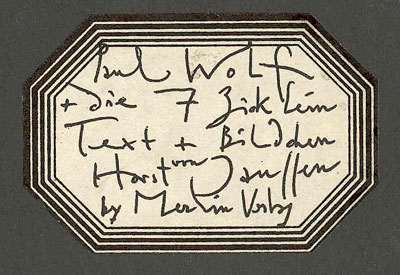 Paul Wolf
+ die 7 Zicklein
Text + Bildchen
von
Horst Janssen
by Merlin Verlag